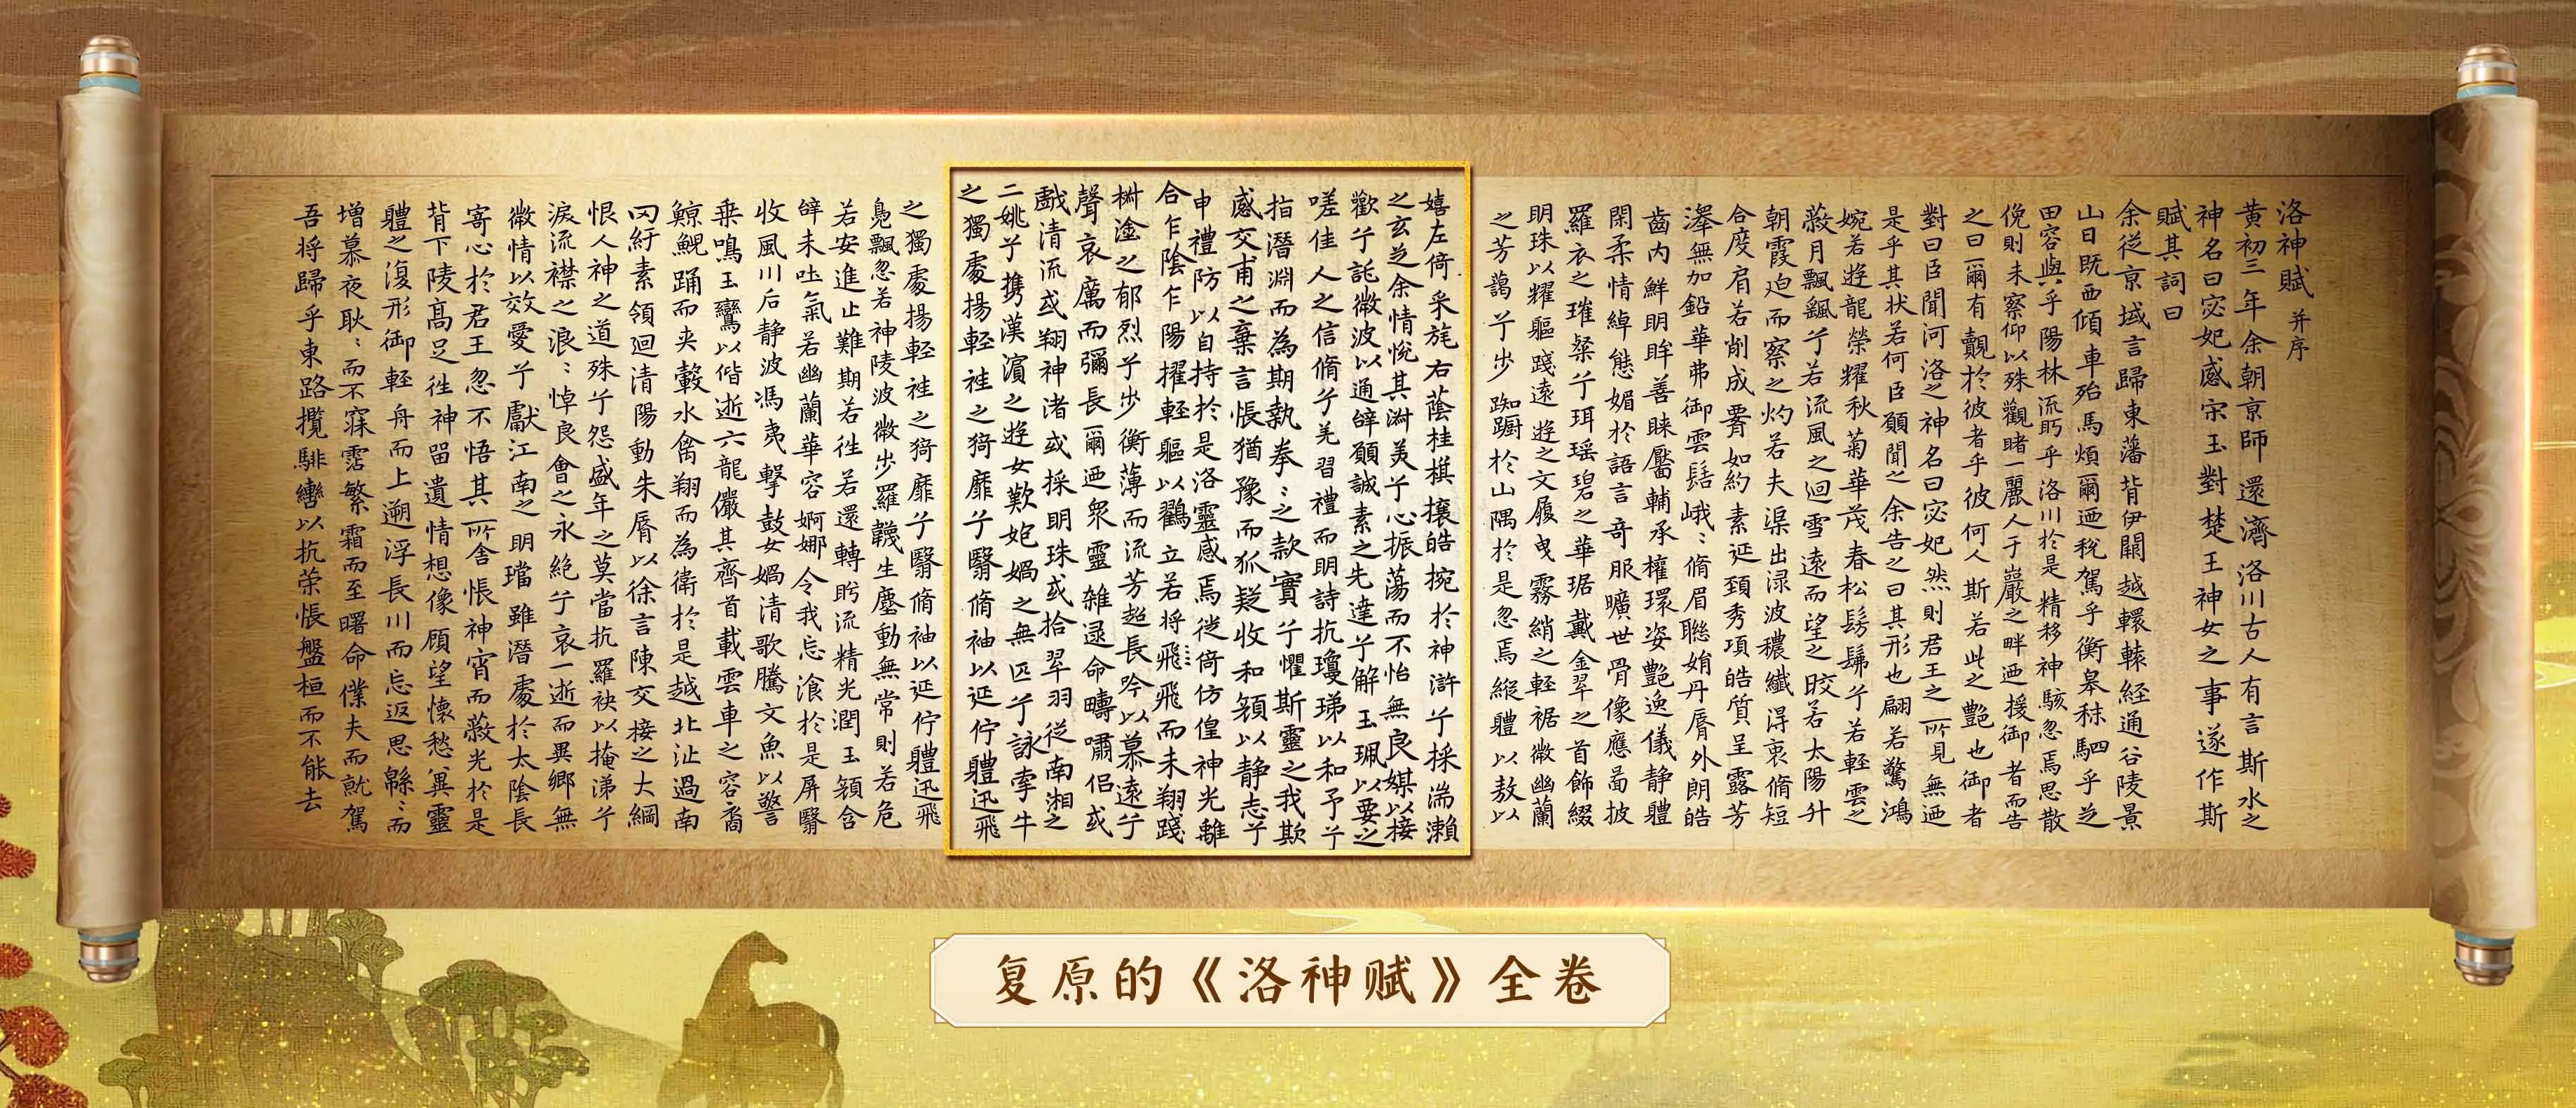 洛神賦并序
黃初三年余朝京師還濟洛川古人有言斯水之
神名曰宓妃感宋玉對楚王神女之事遂作斯
賦其詞曰
余從京域言歸東藩背伊闕越轘轅經通谷陵景
山日既西傾車殆馬煩爾迺稅駕乎蘅皋秣駟乎芝
田容與乎陽林流眄乎洛川於是精移神駭忽焉思散
俛則未察仰以殊觀睹一麗人于巖之畔迺援御者而告
之曰爾有覿於彼者乎彼何人斯若此之艷也御者
對曰臣聞河洛之神名曰宓妃然則君王之所見無迺
是乎其狀若何臣願聞之余告之曰其形也翩若驚鴻
婉若遊龍榮耀秋菊華茂春松髣髴兮若輕雲之
蔽月飄飖兮若流風之迴雪遠而望之皎若太陽升
朝霞迫而察之灼若夫渠出淥波穠纖得衷脩短
合度肩若削成署如約素延頸秀項皓質呈露芳
澤無加鉛華弗御雲髻峨〻脩眉聯娟丹脣外朗皓
齒內鮮明眸善睞靨輔承權瓌姿艷逸儀靜體
閑柔情綽態媚於語言奇服曠世骨像應圖披
羅衣之璀粲兮珥瑤碧之華琚戴金翠之首飾綴
明珠以耀軀踐遠遊之文履曳霧綃之輕裾微幽蘭
之芳藹兮步踟躕於山隅於是忽焉縱體以遨以
嬉左倚采旄右蔭桂棋攘皓捥於神滸兮採湍瀨
之玄芝余情悅其淑美兮心振蕩而不怡無良媒以接
歡兮託微波以通辭願誠素之先達兮解玉珮以要之
嗟佳人之信脩兮羌習禮而明詩抗瓊珶以和予兮
指潛淵而為期執拳〻之款實兮懼斯靈之我欺
感交甫之棄言悵猶豫而狐疑收和顏以靜志兮
申禮防以自持於是洛靈感焉徙倚仿偟神光離
合乍陰乍陽擢輕軀以鸛立若將飛而未翔踐
椒塗之郁烈兮步衡薄而流芳超長吟以慕遠兮
聲哀厲而彌長爾迺眾靈雜遝命疇嘯侶或
戲清流或翔神渚或採明珠或拾翠羽從南湘之
二姚兮携漢濱之遊女歎匏媧之無匹兮詠牽牛
之獨處揚輕袿之猗靡兮翳脩袖以延佇體迅飛
之獨處揚輕袿之猗靡兮翳脩袖以延佇體迅飛
鳧飄忽若神陵波微步羅韈生塵動無常則若危
若安進止難期若往若還轉眄流精光潤玉顏含
辭未吐氣若幽蘭華容婀娜令我忘湌於是屏翳
收風川后靜波馮夷擊鼓女媧清歌騰文魚以警
乘鳴玉鸞以偕逝六龍儼其齊首載雲車之容裔
鯨鯢踊而夾轂水禽翔而為衛於是越北沚過南
岡紆素領迴清陽動朱脣以徐言陳交接之大綱
恨人神之道殊兮怨盛年之莫當抗羅袂以掩涕兮
淚流襟之浪〻悼良會之永絕兮哀一逝而異鄉無
微情以效愛兮獻江南之明璫雖潛處於太陰長
寄心於君王忽不悟其所舍悵神宵而蔽光於是
背下陵高足往神留遺情想像顧望懷愁冀靈
體之復形御輕舟而上遡浮長川而忘返思緜〻而
增慕夜耿〻而不寐霑繁霜而至曙命僕夫而就駕
吾將歸乎東路攬騑轡以抗策悵盤桓而不能去
复原的《洛神赋》全卷